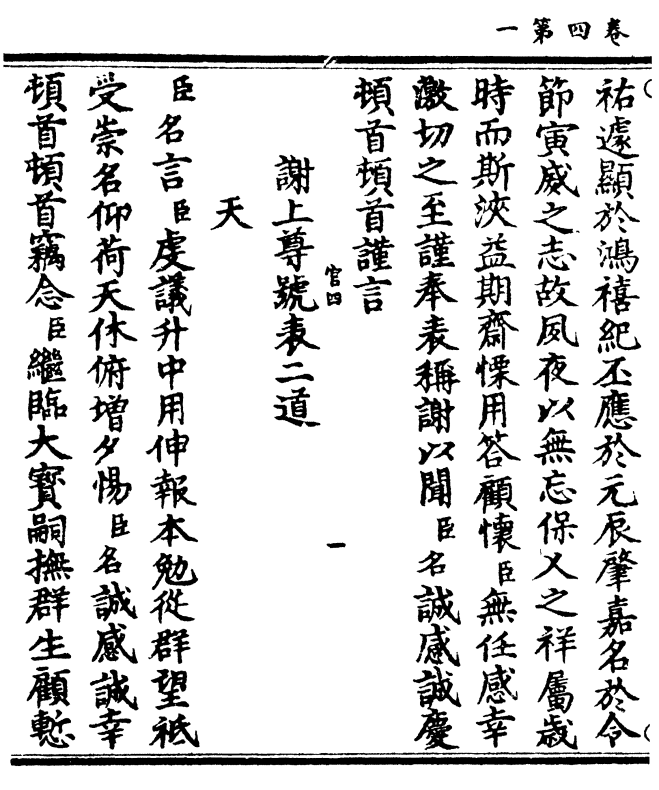 卷四第一
祐遽顯於鴻禧紀丕應於元辰肇嘉名於令
節寅威之志故夙夜以無忘保乂之祥屬歲
時而斯浹益期齋慄用答顧懷臣無任感幸
激切之至謹奉表稱謝以聞臣名誠感誠慶
頓首頓首謹言
官四
一
謝上尊號表二道
天
臣名言臣虔議升中用伸報本勉從群望祇
受崇名仰荷天休俯增夕惕臣名誠感誠幸
頓首頓首竊念臣繼臨大寶嗣撫群生顧慙